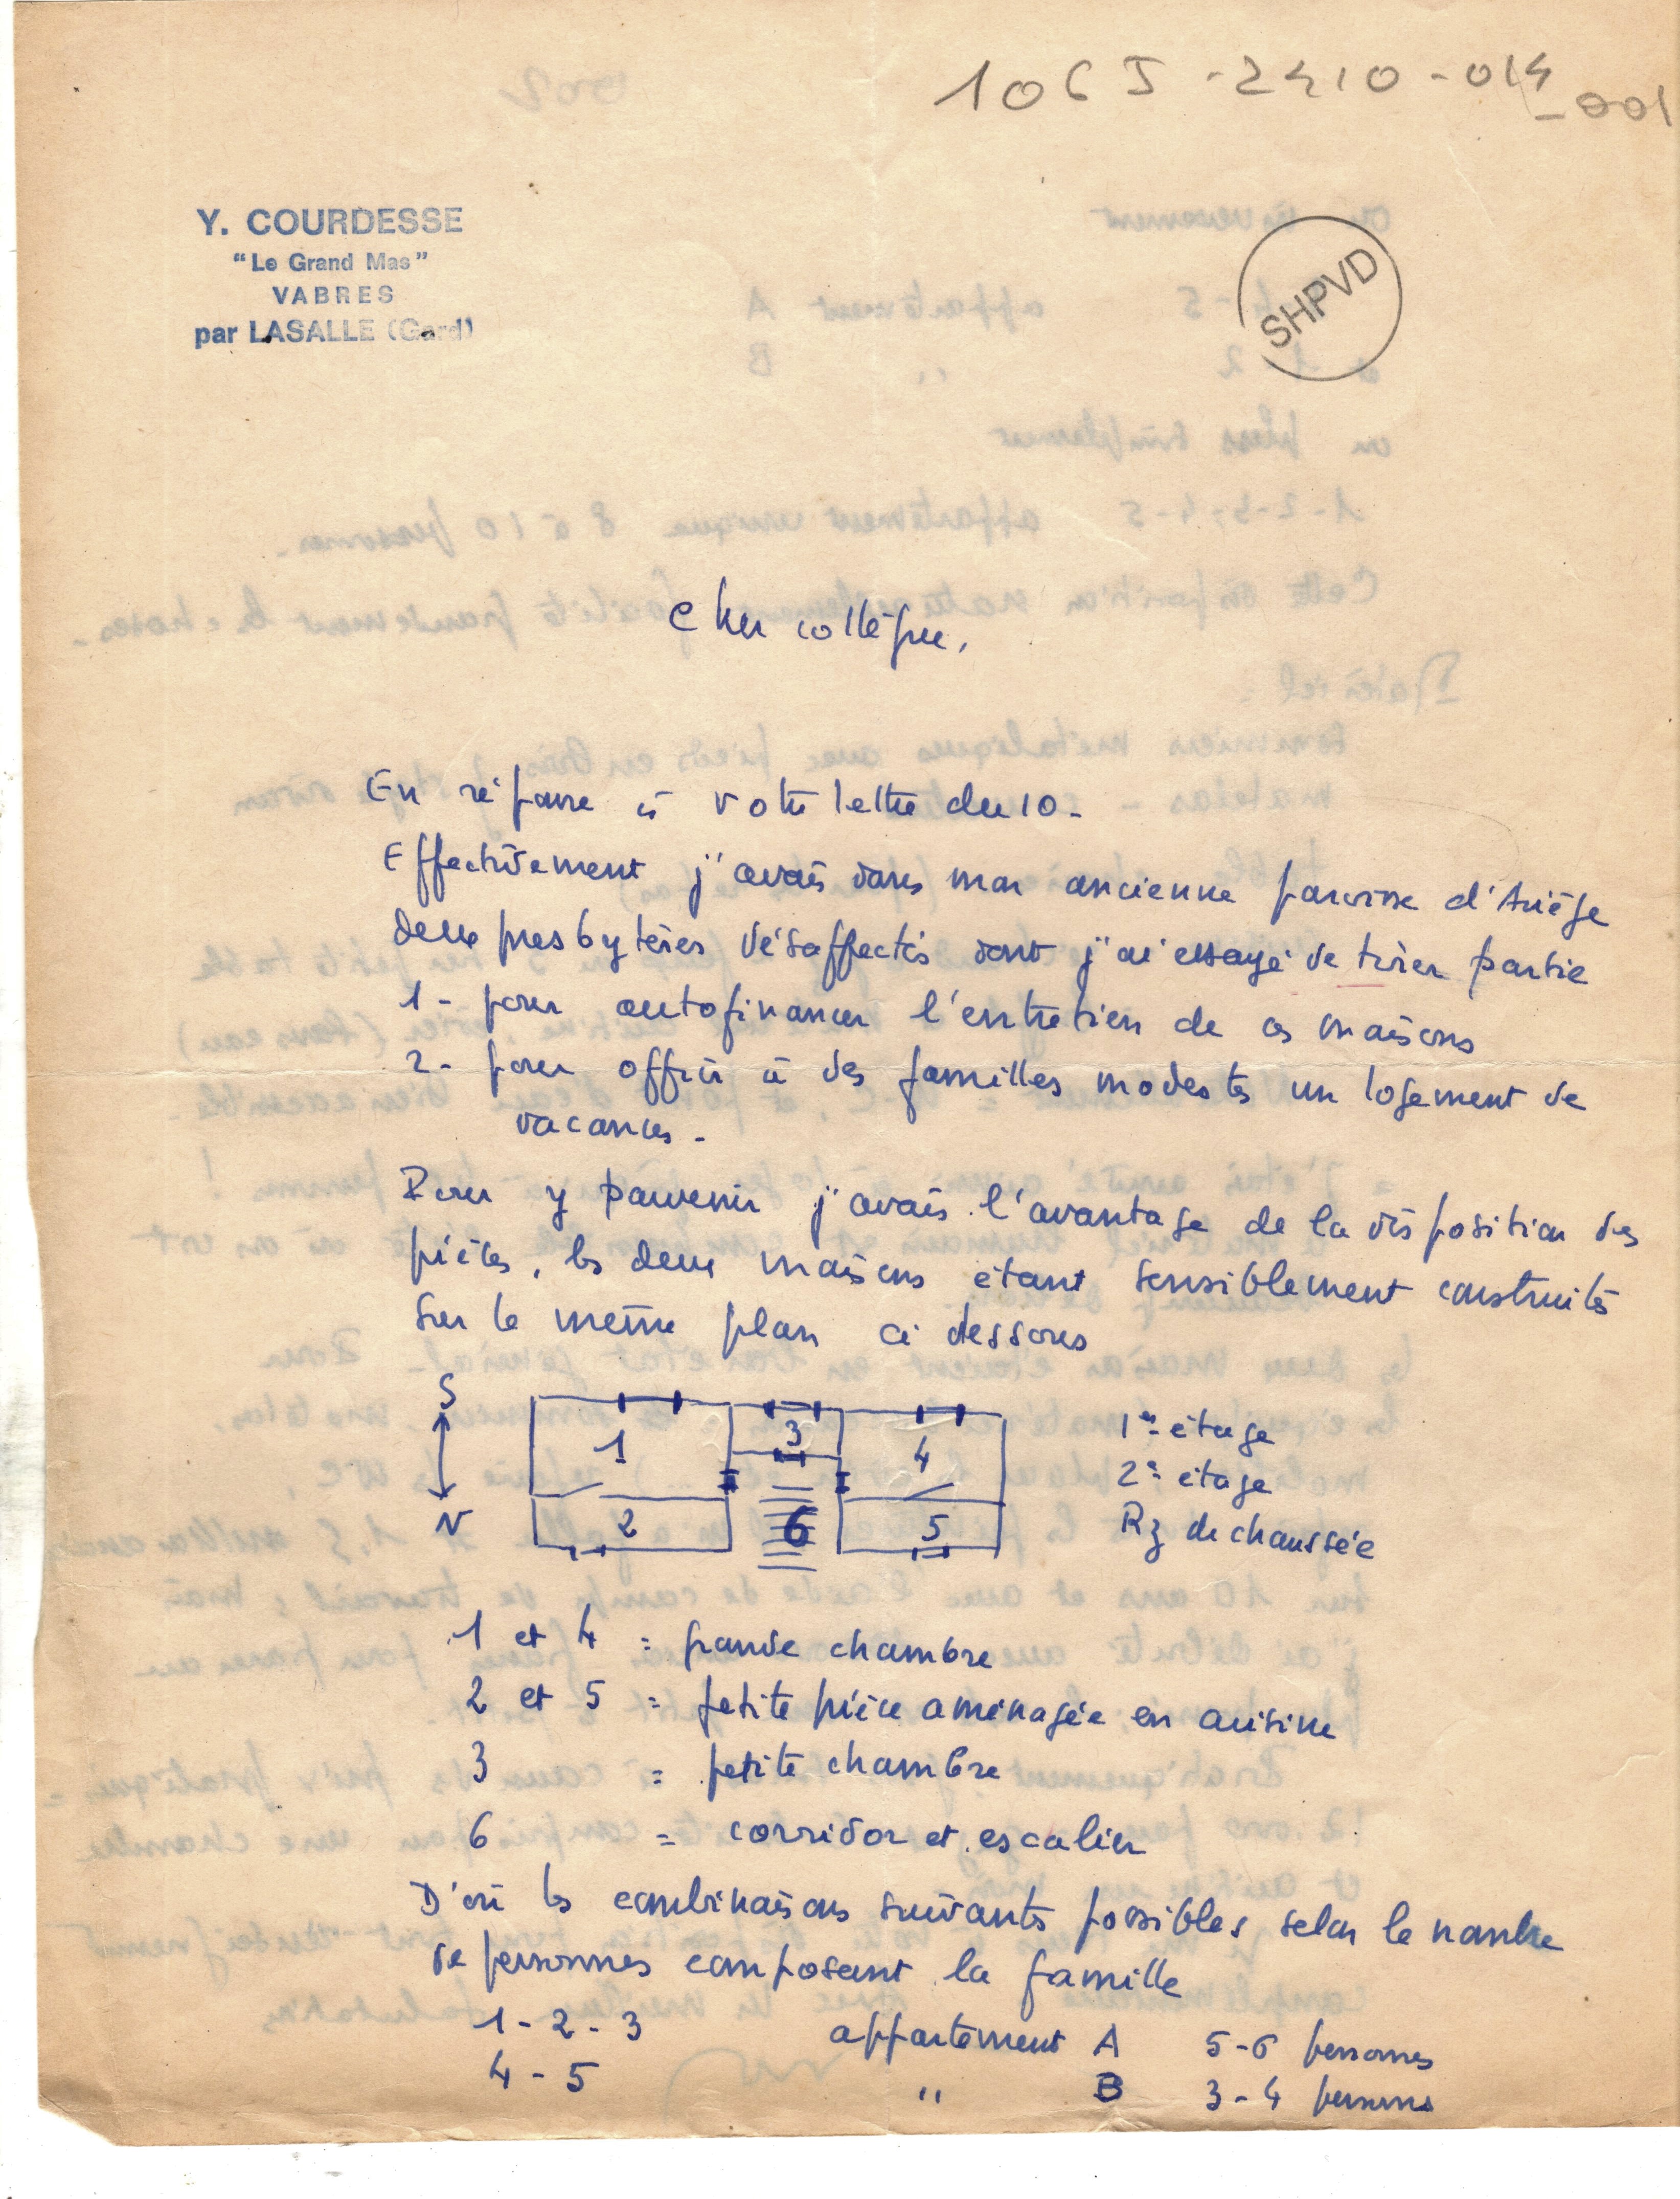 106 J - 2410 - 014_001
Y. COURDESSE
"Le Grand Mas"
VABRES
par LASALLE (Gard)
SHPVD
Cher collègue,
En réponse à votre lettre du 10.
Effectivement j'avais dans mon ancienne paroisse d'Ariège
deux presbytères désaffectés dont j'ai essayé de tirer partie
1 - pour autofinancer l'entretien de ces maisons
2 - pour offrir à des familles modestes un logement de
vacances -
Pour y parvenir j'avais l'avantage de la disposition des
pièces, les deux maisons étant sensiblement construites
sur le même plan ci dessous
S
N
1 2 3 4 5 6
1er étage
2e étage
Rz de chaussée
1 et 4 = grande chambre
2 et 5 = petite pièce aménagée en cuisine
3 = petite chambre
6 = corridor et escalier
D'où les combinaisons suivantes possibles selon le nombre
de personnes composant la famille
1 - 2 - 3 appartement A 5-6 personnes
4 - 5 " B 3-4 personnes